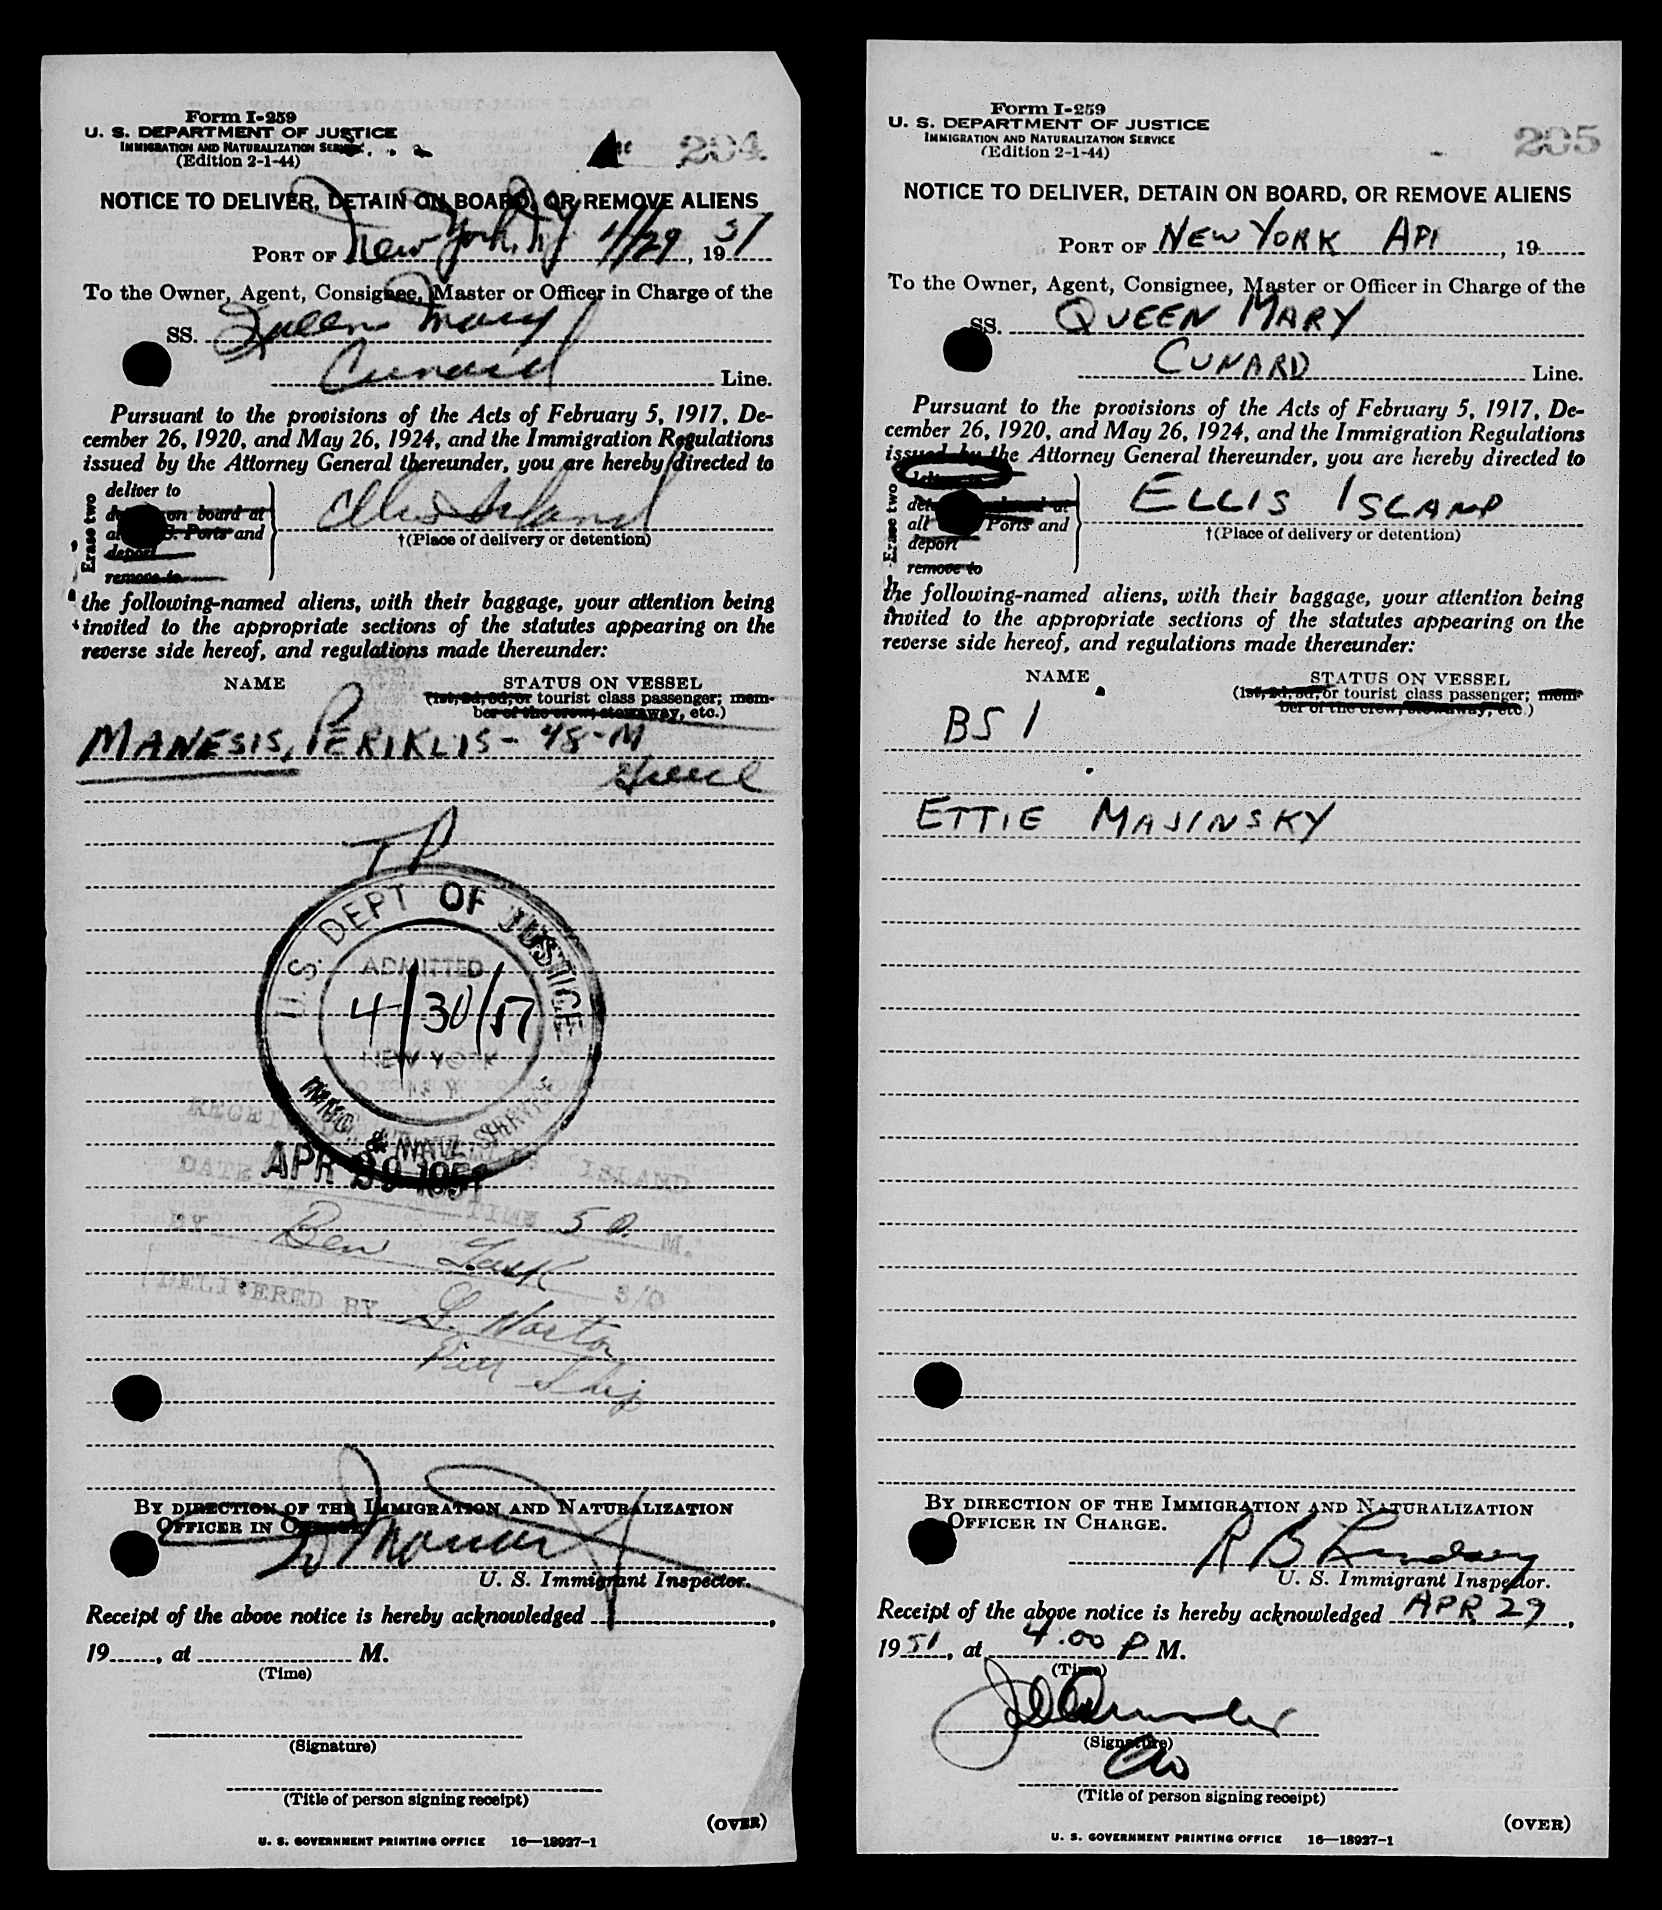 Form I-259
U. S. DEPARTMENT OF JUSTICE
IMMIGRATION AND NATURALIZATION SERVICE
(Edition 2-1-44)
204
NOTICE TO DELIVER, DETAIN ON BOARD, OR REMOVE ALIENS
PORT OF New York, NY 4/29, 1951
To the Owner, Agent, Consignee, Master or Officer in Charge of the
SS. Queen Mary
Cunard Line.
Pursuant to the provisions of the Acts of February 5, 1917, De-
cember 26, 1920, and May 26, 1924, and the Immigration Regulations
issued by the Attorney General thereunder, you are hereby directed to
Erase two
deliver to
on board at
S. Ports and
deport
remove to
Ellis Island
†(Place of delivery or detention)
the following-named aliens, with their baggage, your attention being
invited to the appropriate sections of the statutes appearing on the
reverse side hereof, and regulations made thereunder:
NAME STATUS ON VESSEL
(1st, 2d, 3d, or tourist class passenger; mem-
ber of the crew, stowaway, etc.)
MANESIS, PERIKLIS - 48 - M
Greece
TP
U. S. DEPT OF JUSTICE
ADMITTED
4/30/51
NEW YORK
N. Y.
IMMIG & NATZ. SERVICE
ISLAND
DATE APR 29 1951
TIME 5 M.
BY Ben
S/O
DELIVERED BY G. Norton
Ship
BY DIRECTION OF THE IMMIGRATION AND NATURALIZATION
OFFICER IN CHARGE.
U. S. Immigrant Inspector.
Receipt of the above notice is hereby acknowledged ,
19 , at M.
(Time)
(Signature)
(Title of person signing receipt)
(OVER)
U. S. GOVERNMENT PRINTING OFFICE 16—18927-1
Form I-259
U. S. DEPARTMENT OF JUSTICE
IMMIGRATION AND NATURALIZATION SERVICE
(Edition 2-1-44)
205
NOTICE TO DELIVER, DETAIN ON BOARD, OR REMOVE ALIENS
PORT OF NEW YORK API , 19
To the Owner, Agent, Consignee, Master or Officer in Charge of the
SS. QUEEN MARY
CUNARD Line.
Pursuant to the provisions of the Acts of February 5, 1917, De-
cember 26, 1920, and May 26, 1924, and the Immigration Regulations
issued by the Attorney General thereunder, you are hereby directed to
Erase two
all Ports and
deport
remove to
ELLIS ISLAND
†(Place of delivery or detention)
the following-named aliens, with their baggage, your attention being
invited to the appropriate sections of the statutes appearing on the
reverse side hereof, and regulations made thereunder:
NAME STATUS ON VESSEL
(1st, 2d, 3d, or tourist class passenger; mem-
ber of the crew, stowaway, etc.)
BS 1
ETTIE MASINSKY
BY DIRECTION OF THE IMMIGRATION AND NATURALIZATION
OFFICER IN CHARGE.
R B Lindsay
U. S. Immigrant Inspector.
Receipt of the above notice is hereby acknowledged APR 29,
1951, at 4.00 P M.
(Time)
(Signature)
(Title of person signing receipt)
(OVER)
U. S. GOVERNMENT PRINTING OFFICE 16—18927-1